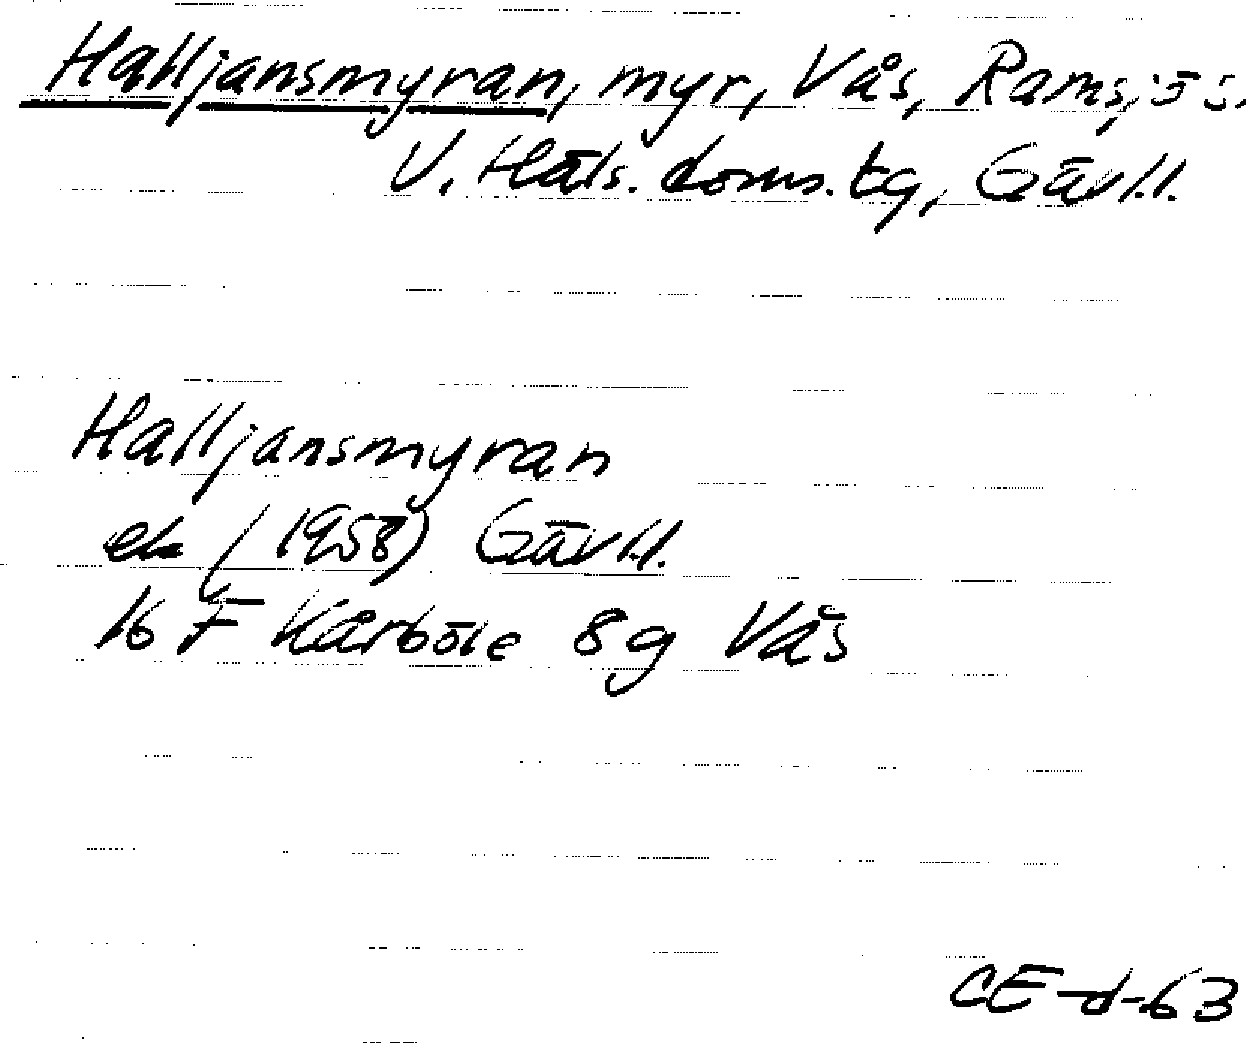 Halljansmyran, myr, Vås, Ramsjö s.
V. Häls. doms. tg, Gävl.l.
Halljansmyran
ek (1958) Gävl.l.
16 F Kårböle 8g Vås
CE-d-63